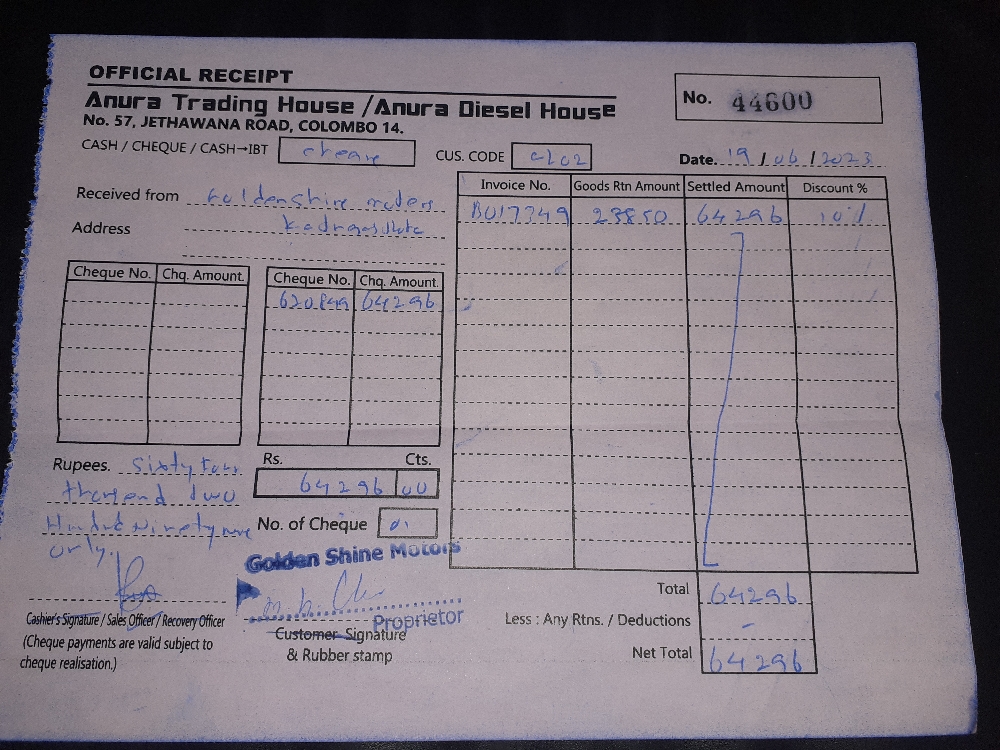 OFFICIAL RECEIPT
Anura Trading House / Anura Diesel House
No. 57, JETHAWANA ROAD, COLOMBO 14.
No. 44600
CASH / CHEQUE / CASH→IBT cheque
CUS. CODE
Date. 19/06/2023
Received from Goldenshine motors
Address
Invoice No. Goods Rtn Amount Settled Amount Discount %
BU17749 23850 64296 10%
Cheque No. Chq. Amount. Cheque No. Chq. Amount.
620899 64296
Rupees. Sixty Four
thousend two
Hundred Ninety
only.
Rs. Cts.
64296 00
No. of Cheque 01
Golden Shine Motors
Proprietor
Cashier's Signature / Sales Officer / Recovery Officer
(Cheque payments are valid subject to
cheque realisation.)
Customer Signature
& Rubber stamp
Total 64296
Less : Any Rtns. / Deductions -
Net Total 64296